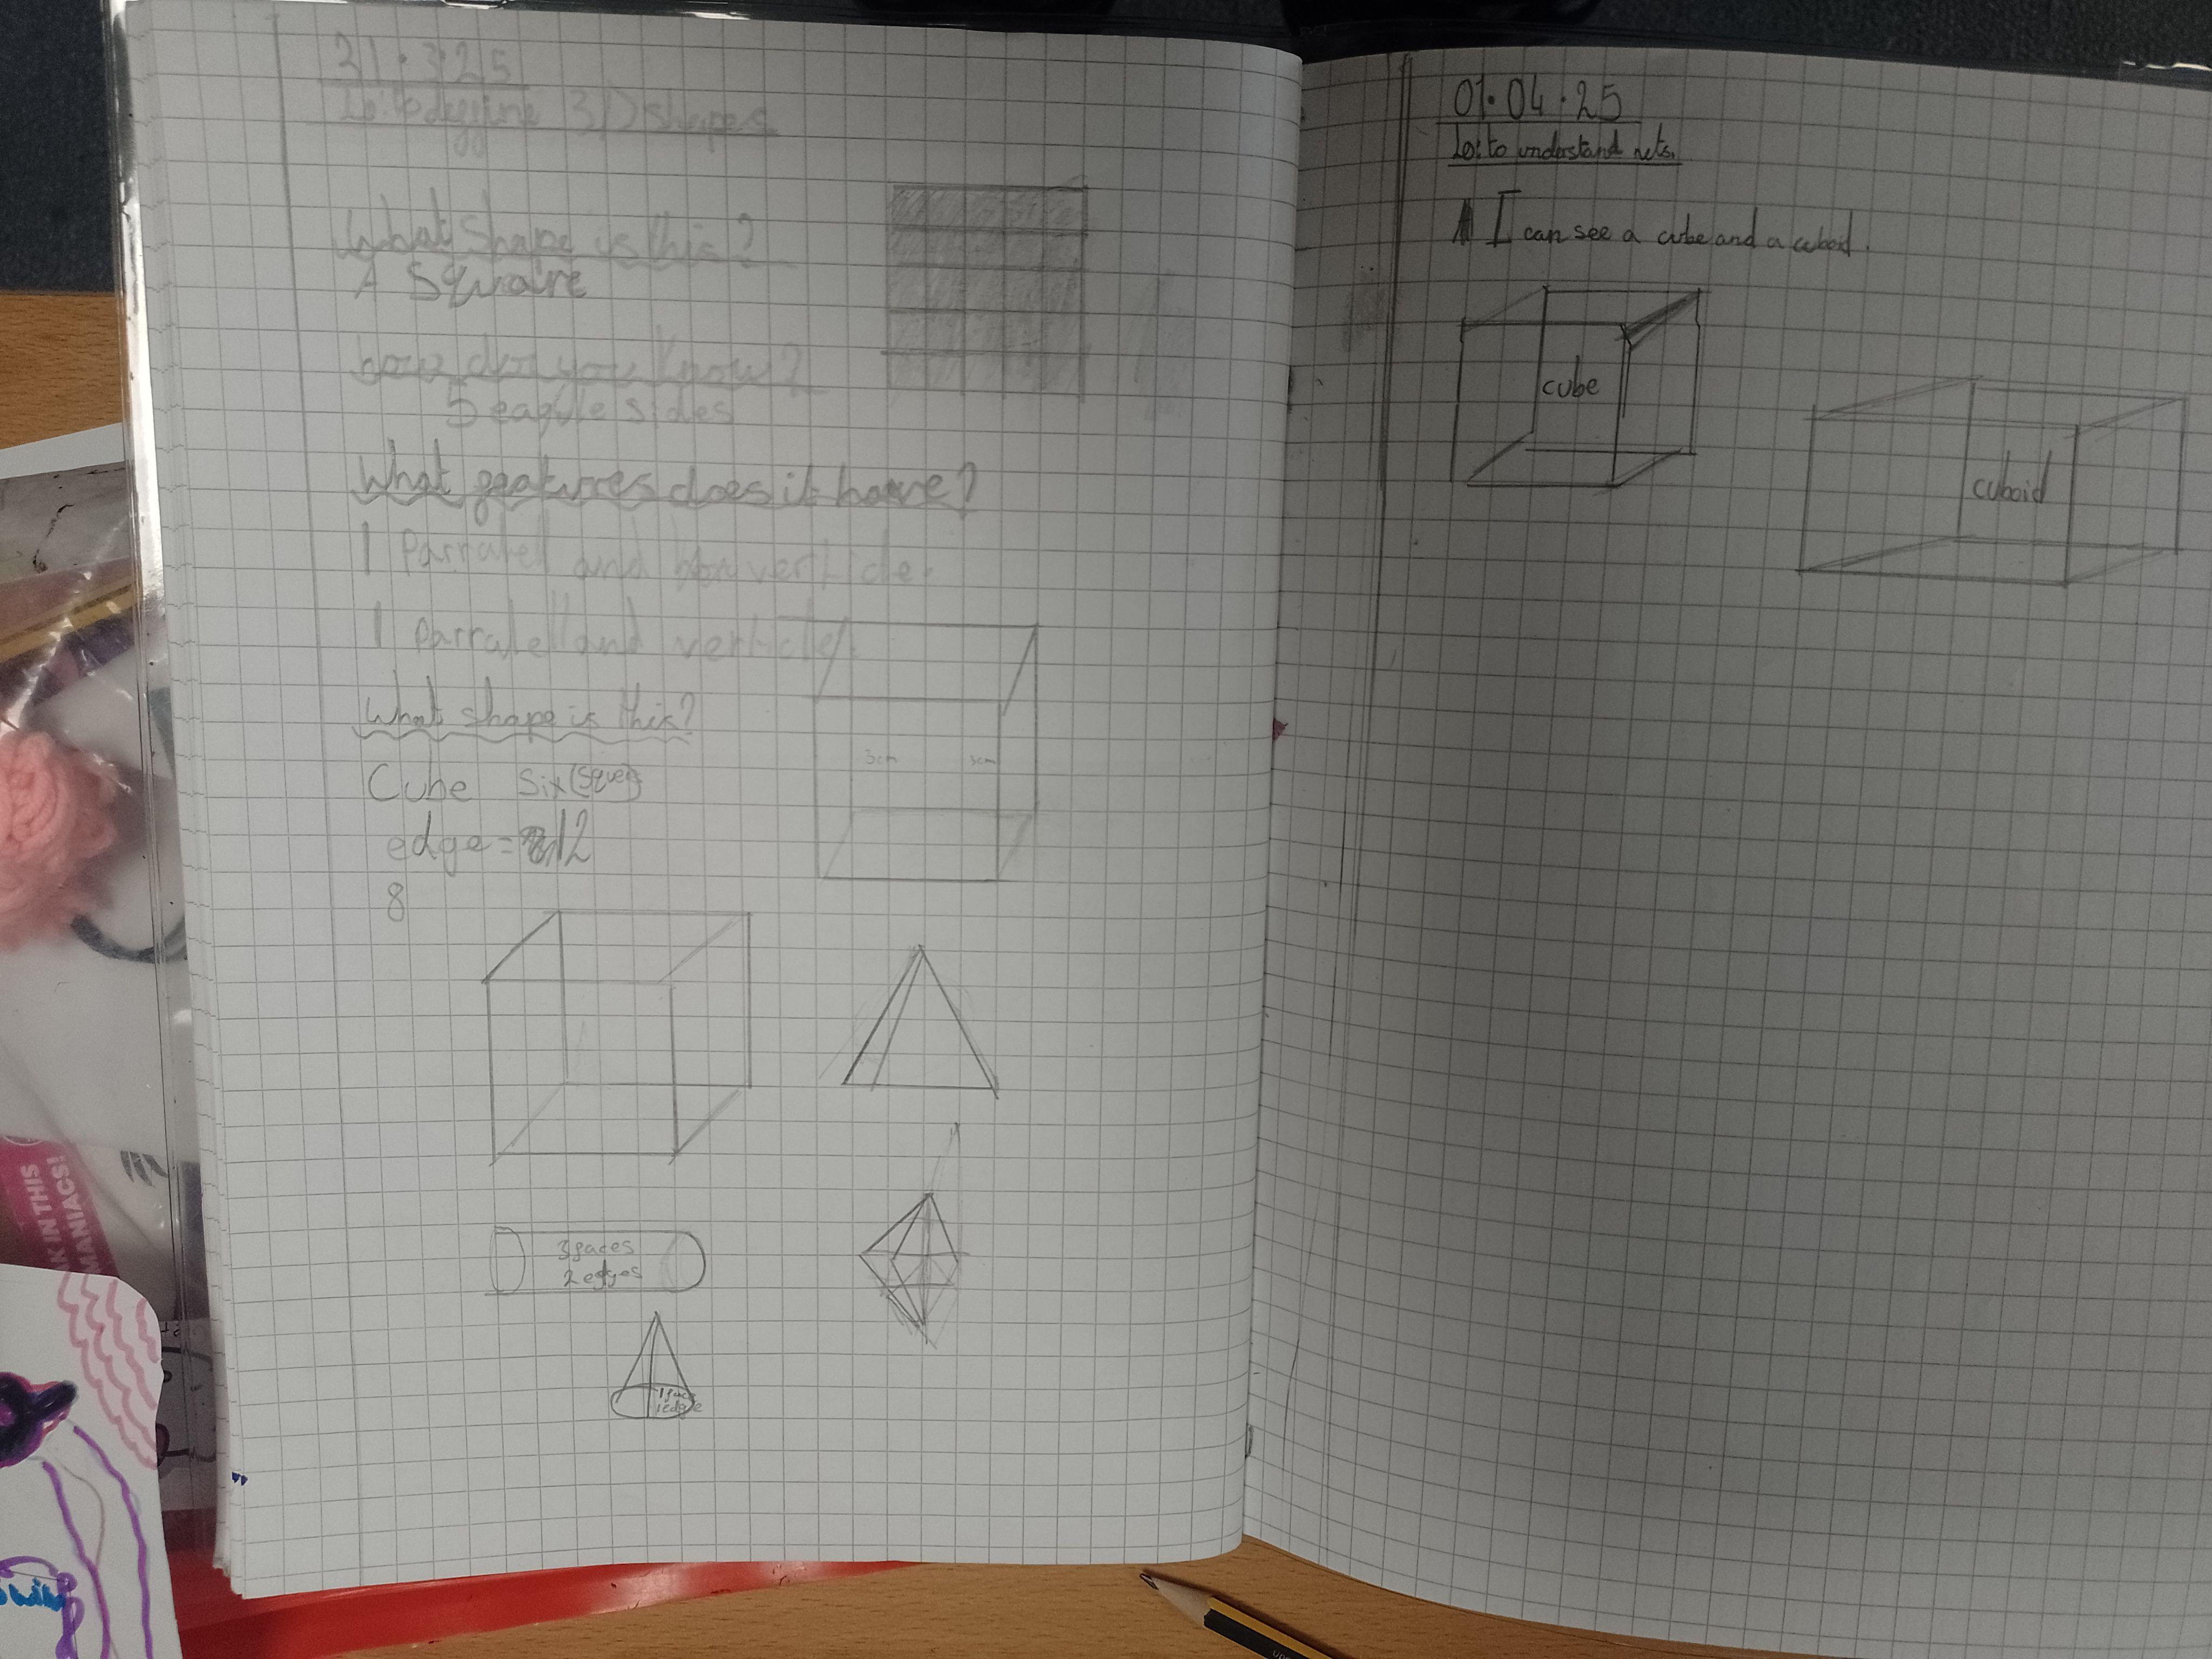 31.3.25
Lo: to deggine 3D shapes
What shape is this?
A Square
how do you know?
5 eaqule sides
What geatures does it have?
1 Parralel and verticle.
1 parralel and verticle
What shape is this?
Cube Six
edge = 12
8
3cm 3cm
3 gaces
2 edges
1 edge
01.04.25
Lo: to understand nets.
I can see a cube and a cuboid.
cube
cuboid
K IN THIS
MANIACS!